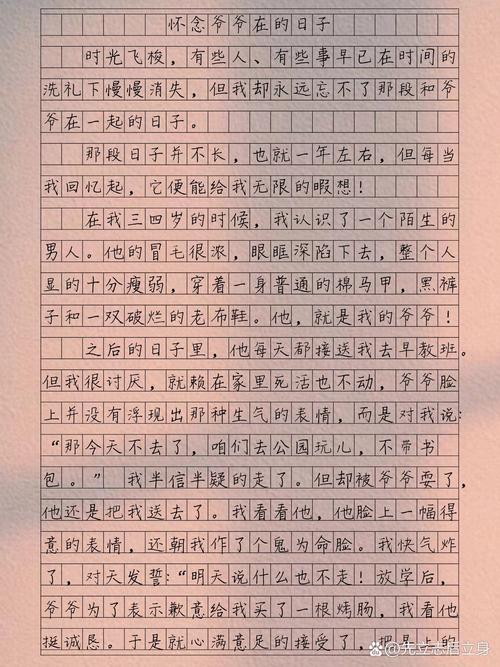 怀念爷爷在的日子
时光飞梭，有些人、有些事早已在时间的
洗礼下慢慢消失，但我却永远忘不了那段和爷
爷在一起的日子。
那段日子并不长，也就一年左右，但每当
我回忆起，它便能给我无限的暇想！
在我三四岁的时候，我认识了一个陌生的
男人。他的冒毛很浓，眼眶深陷下去，整个人
显的十分瘦弱，穿着一身普通的棉马甲，黑裤
子和一双破烂的老布鞋。他，就是我的爷爷！
之后的日子里，他每天都接送我去早教班。
但我很讨厌，就赖在家里死活也不动，爷爷脸
上并没有浮现出那种生气的表情，而是对我说：
“那今天不去了，咱们去公园玩儿，不带书
包。”我半信半疑的走了。但却被爷爷耍了，
他还是把我送去了。我看看他，他脸上一幅得
意的表情，还朝我作了个鬼为命脸。我快气炸
了，对天发誓：“明天说什么也不走！放学后，
爷爷为了表示歉意给我买了一根烤肠，我看他
挺诚恳。于是就心满意足的接受了，把是 的
先立志盾立身